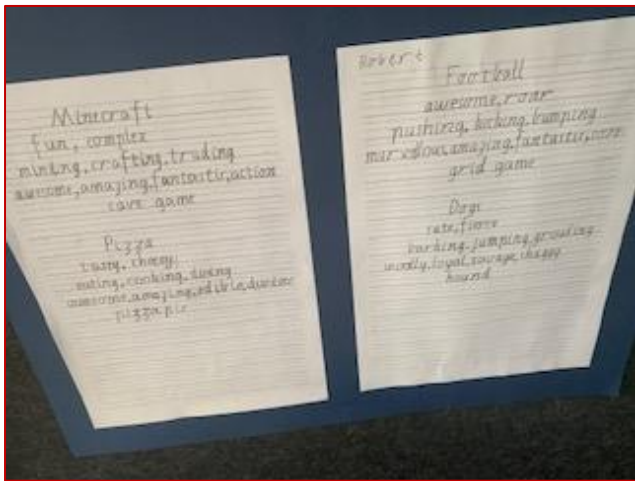 Minecraft
fun, complex
mining, crafting, trading
awesome, amazing, fantastic, action
cave game
Pizza
tasty, cheesy
eating, cooking, dining
awesome, amazing, edible,
pizza pie
Robert
Football
awesome, roar
pushing, kicking, bumping
marvellous, amazing, fantastic,
grid game
Dogs
cute, fierce
barking, jumping, growling
loyal, savage, shaggy
hound